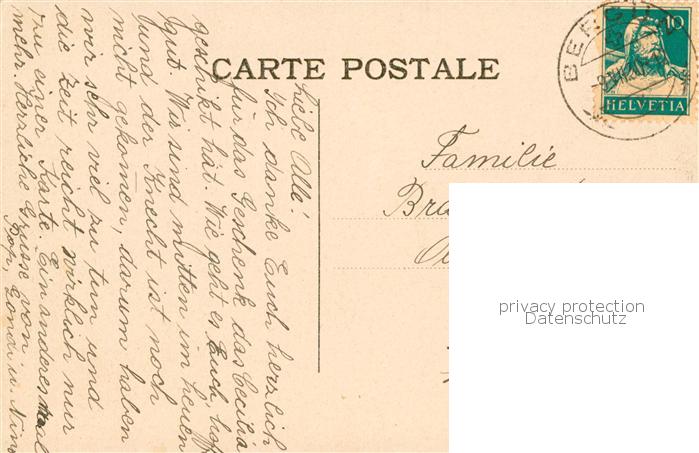 CARTE POSTALE
10
HELVETIA
Liebe Alle!
Ich danke Euch herzlich
für das Geschenk das Cecilia
geschikt hat. Wie geht es Euch, hoff
gut. Wir sind mitten im heuen
und der Knecht ist noch
nicht gekomen, darum haben
wir sehr viel zu tun und
die Zeit reicht wirklich nur
zu einer Karte. Ein anderes Mal
mehr. Herrliche Grüsse von
Familie
privacy protection
Datenschutz